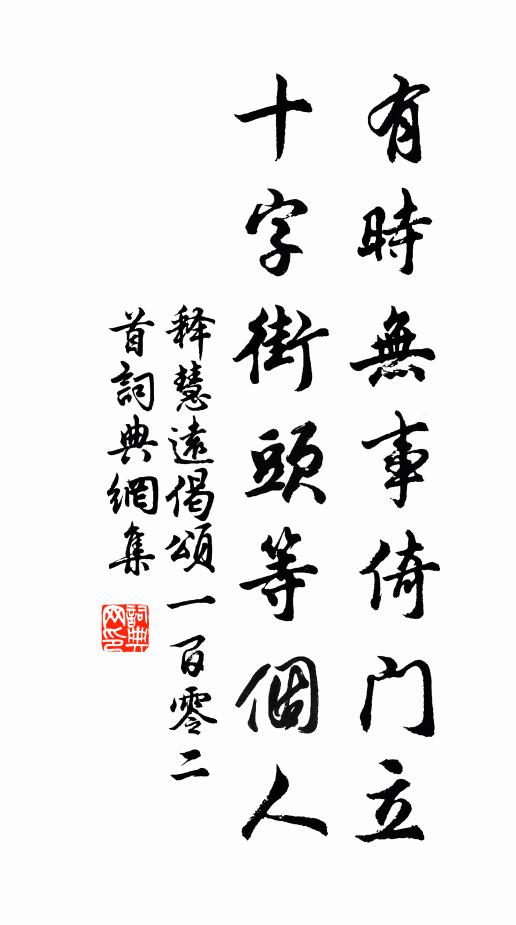 有時無事倚門立
十字街頭等個人
释慧遠偈頌一百零二
首詞典網集
詞典网印